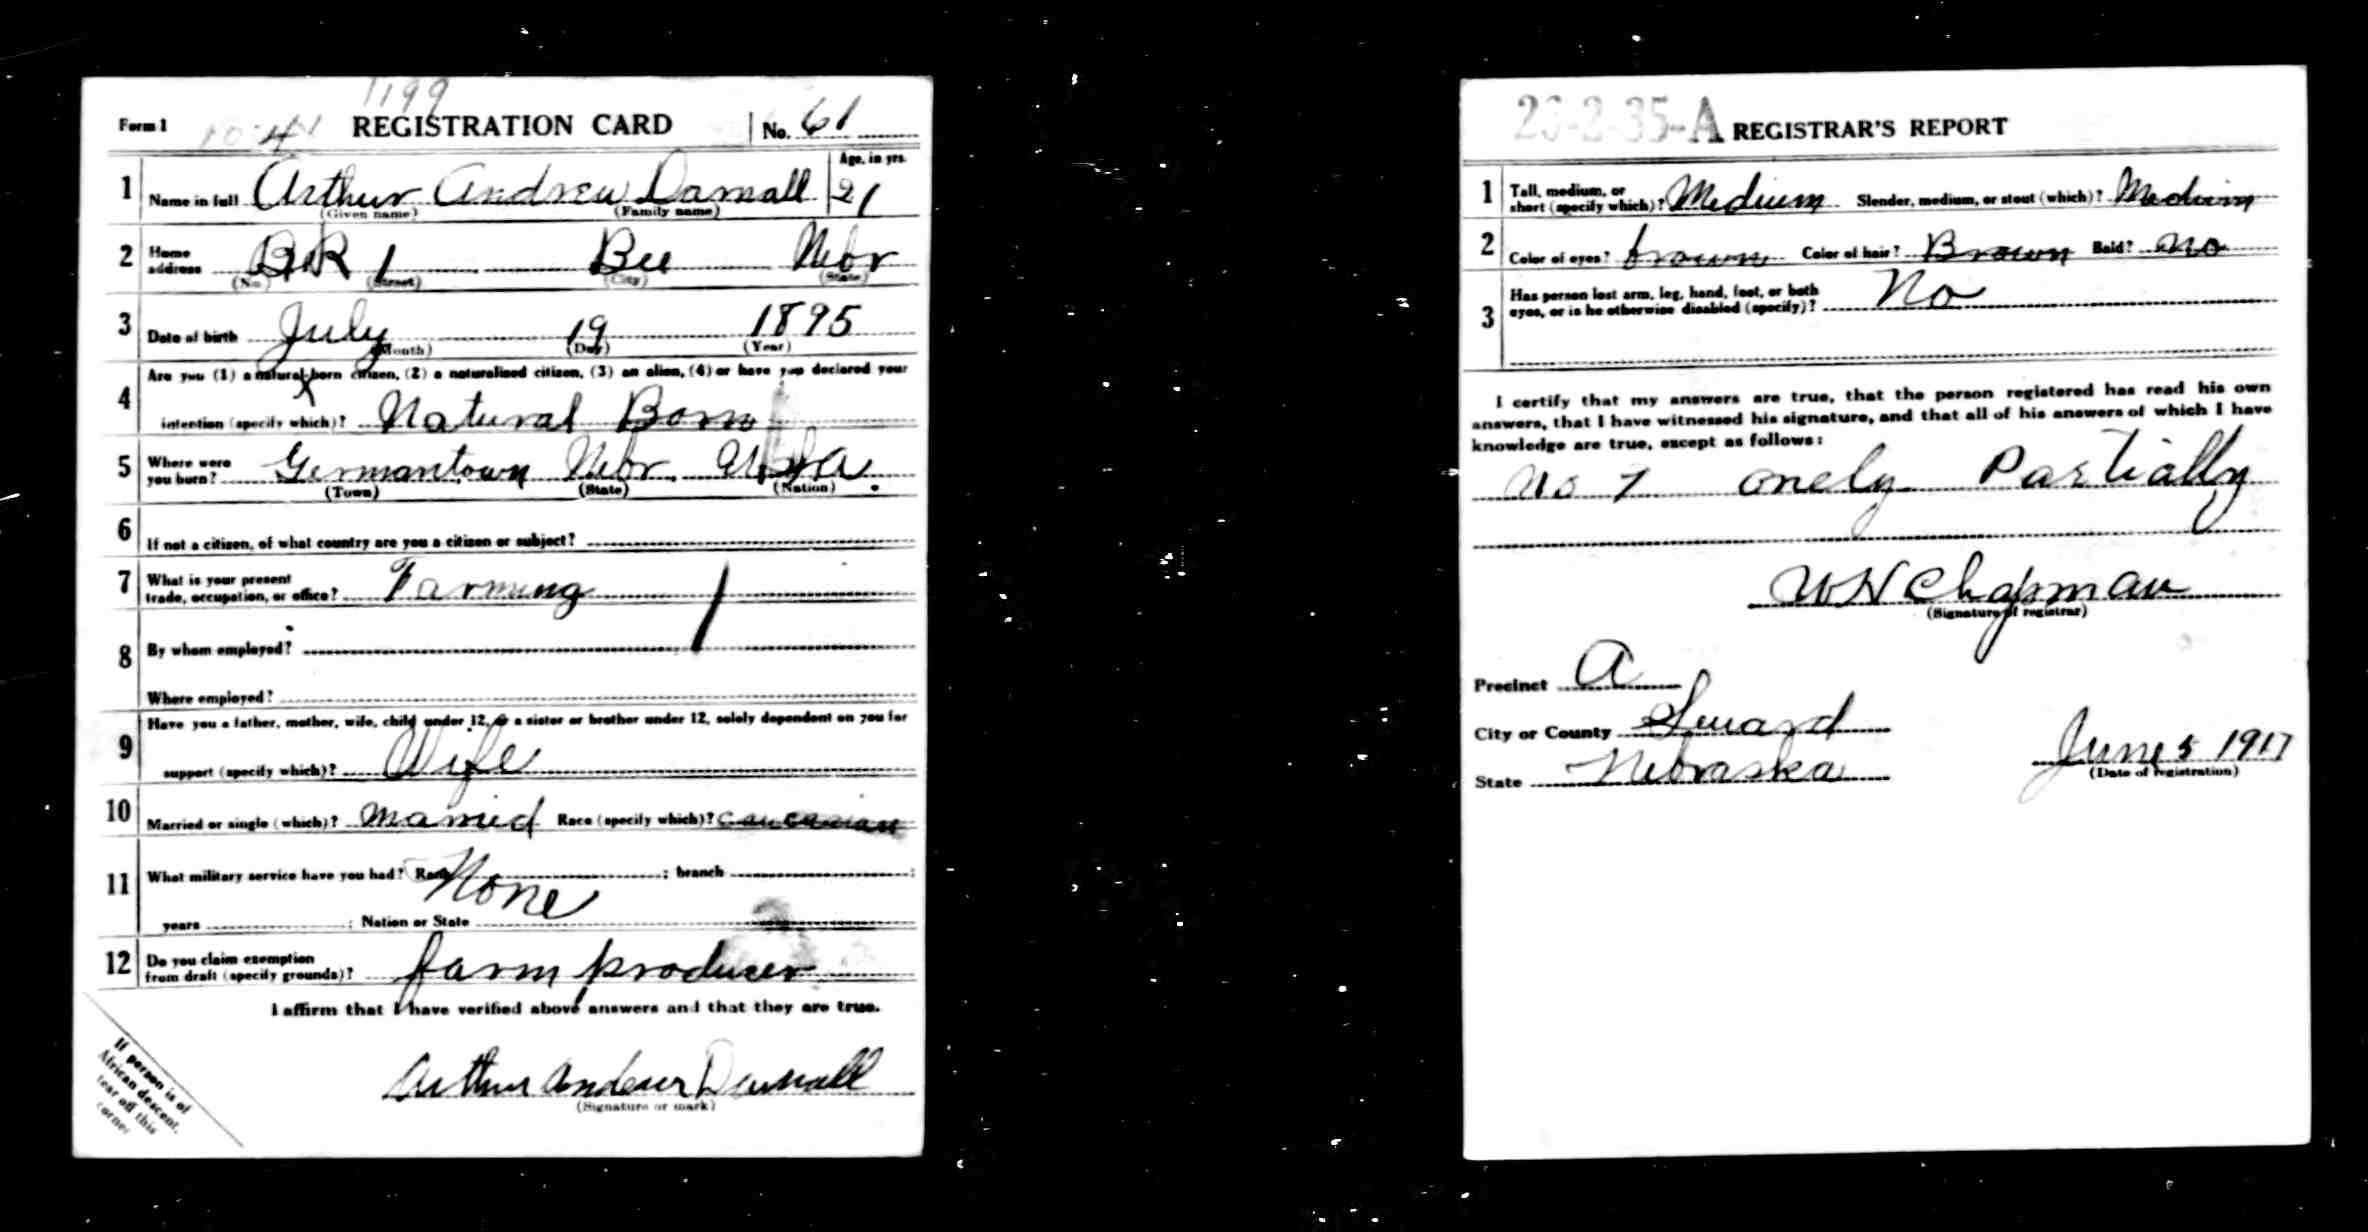 1199
Form 1 REGISTRATION CARD No. 61
1 Name in full Arthur Andrew Darnall Age, in yrs. 21
(Given name) (Family name)
2 Home address RR 1 Bee Nebr
(No.) (Street) (City) (State)
3 Date of birth July 19 1895
(Month) (Day) (Year)
4 Are you (1) a natural-born citizen, (2) a naturalized citizen, (3) an alien, (4) or have you declared your
intention (specify which)? Natural Born
5 Where were you born? Germantown Nebr. USA.
(Town) (State) (Nation)
6 If not a citizen, of what country are you a citizen or subject?
7 What is your present trade, occupation, or office? Farming
8 By whom employed?
Where employed?
9 Have you a father, mother, wife, child under 12, or a sister or brother under 12, solely dependent on you for
support (specify which)? Wife
10 Married or single (which)? Married Race (specify which)? Caucasian
11 What military service have you had? Rank None ; branch ;
years ; Nation or State
12 Do you claim exemption from draft (specify grounds)? farm producer
I affirm that I have verified above answers and that they are true.
Arthur Andrew Darnall
(Signature or mark)
If person is of
African descent,
tear off this
corner
26-2-35-A REGISTRAR'S REPORT
1 Tall, medium, or short (specify which)? Medium Slender, medium, or stout (which)? Medium
2 Color of eyes? brown Color of hair? Brown Bald? no
3 Has person lost arm, leg, hand, foot, or both
eyes, or is he otherwise disabled (specify)? No
I certify that my answers are true, that the person registered has read his own
answers, that I have witnessed his signature, and that all of his answers of which I have
knowledge are true, except as follows:
No 7 onely Partially
W H Chapman
(Signature of registrar)
Precinct A
City or County Seward
State Nebraska
June 5 1917
(Date of registration)